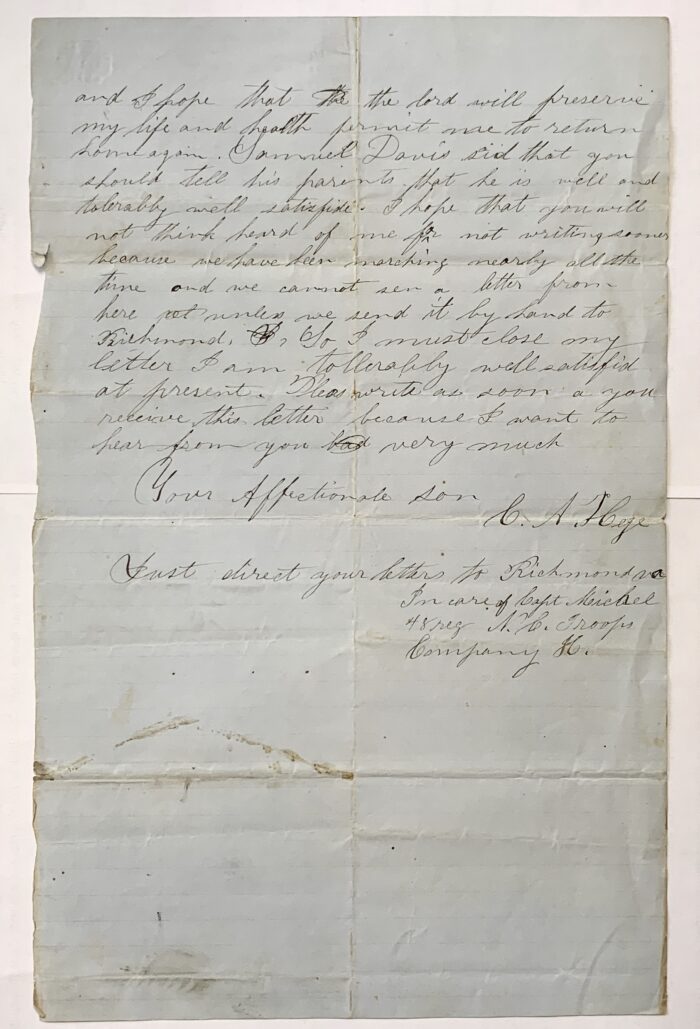 and I hope that the the lord will preserve
my life and health permit me to return
home again. Samuel Davis sid that you
should tell his parents that he is well and
tolerably well satisfide. I hope that you will
not think heard of me for not writing sooner
because we have been marching nearly all the
time and we cannot sen a letter from
here unless we send it by hand to
Richmond, So I must close my
letter I am tollerably well satisfid
at present. Pleas write as soon a you
receive this letter because I want to
hear from you very much
Your Affectionate son
C. A. Hege
Just direct your letters to Richmond va
In care of Capt Michel
48 reg N. C. Troops
Company H.